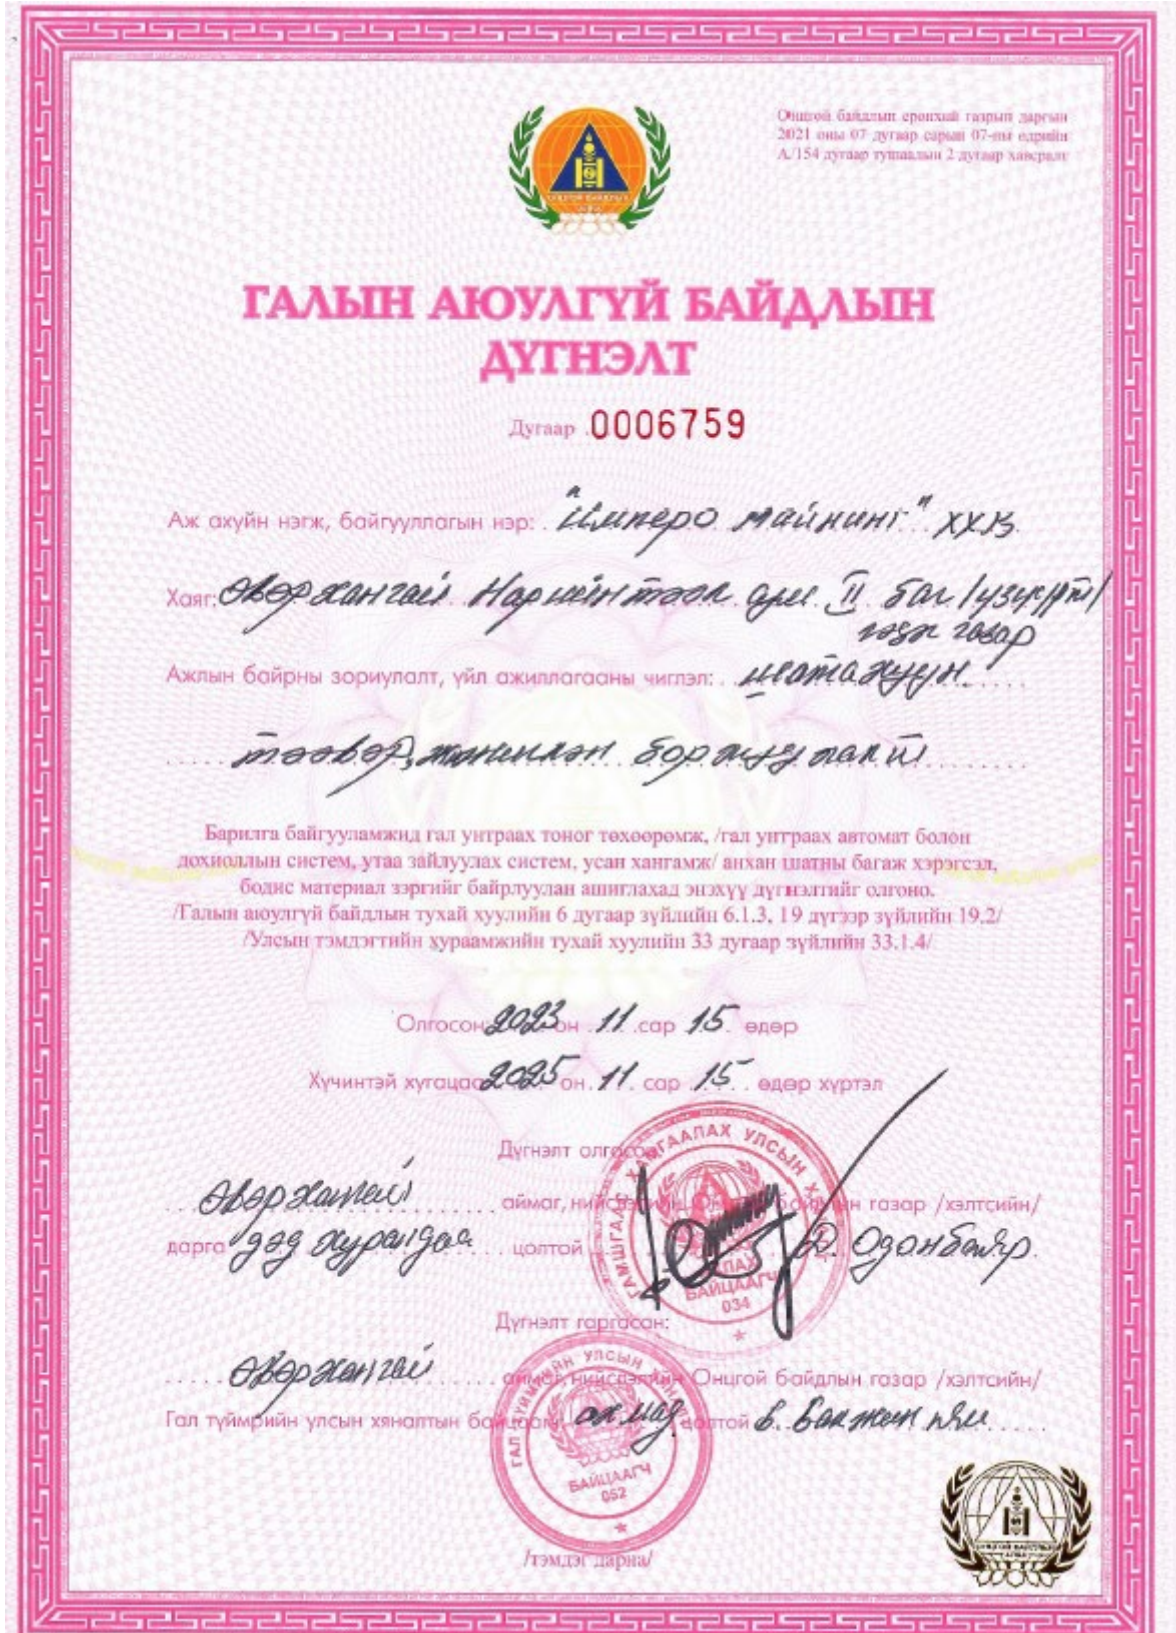 Онцгой байдлын ерөнхий газрын даргын
2021 оны 07 дугаар сарын 07-ны өдрийн
А/154 дугаар тушаалын 2 дугаар хавсралт
ГАЛЫН АЮУЛГҮЙ БАЙДЛЫН
ДҮГНЭЛТ
Дугаар 0006759
Аж ахуйн нэгж, байгууллагын нэр: "Имперо майнинг" ХХК
Хаяг: Өвөрхангай Нарийнтээл сум II баг /үзүүрт/
гэдэг газар
Ажлын байрны зориулалт, үйл ажиллагааны чиглэл: шатахуун
тээвэр, жижиглэн борлуулалт
Барилга байгууламжид гал унтраах тоног төхөөрөмж, /гал унтраах автомат болон
дохиоллын систем, утаа зайлуулах систем, усан хангамж/ анхан шатны багаж хэрэгсэл,
бодис материал зэргийг байрлуулан ашиглахад энэхүү дүгнэлтийг олгоно.
/Галын аюулгүй байдлын тухай хуулийн 6 дугаар зүйлийн 6.1.3, 19 дүгээр зүйлийн 19.2/
/Улсын тэмдэгтийн хураамжийн тухай хуулийн 33 дугаар зүйлийн 33.1.4/
Олгосон 2023 он 11 сар 15 өдөр
Хүчинтэй хугацаа 2025 он 11 сар 15 өдөр хүртэл
Дүгнэлт олгосон:
Өвөрхангай аймаг, нийслэлийн Онцгой байдлын газар /хэлтсийн/
дарга дэд хурандаа цолтой Д. Одонбаяр
БАЙЦААГЧ
034
Дүгнэлт гаргасан:
Өвөрхангай аймаг, нийслэлийн Онцгой байдлын газар /хэлтсийн/
Гал түймрийн улсын хяналтын байцаагч ахмад цолтой
БАЙЦААГЧ
052
/тэмдэг дарна/